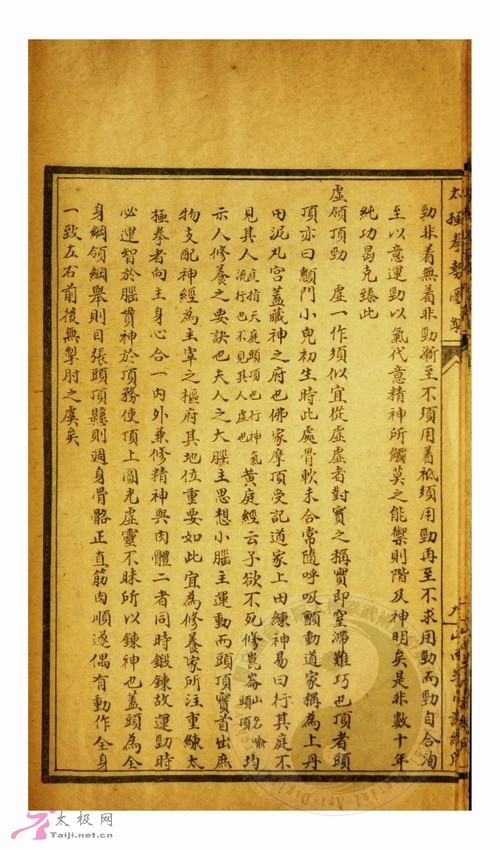 太極拳勢圖解
勁非着無着非勁漸至不須用着祇須用勁再至不求用勁而勁自合洵
至以意運勁以氣代意精神所觸莫之能禦則階及神明矣是非數十年
純功曷克臻此
虛領頂勁　虛一作須似宜從虛虛者對實之稱實即窒滯難巧也頂者頭
頂亦曰顖門小兒初生時此處骨軟未合常隨呼吸顫動道家稱為上丹
田泥丸宮蓋藏神之府也佛家摩頂受記道家上田練神易曰行其庭不
見其人庭指天庭頭頂也行神氣流行也不見其人虛也黃庭經云子欲不死修崑崙山名喻頭頂均
示人修養之要訣也夫人之大腦主思想小腦主運動而頭頂實首出庶
物支配神經為主宰之樞府其地位重要如此宜為修養家所注重練太
極拳者向主身心合一內外兼修精神與肉體二者同時鍛鍊故運勁時
必運智於腦貫神於頂務使頂上圓光虛靈不昧所以鍊神也蓋頭為全
身綱領綱舉則目張頭頂懸則週身骨骼正直筋肉順遂偶有動作全身
一致左右前後無掣肘之虞矣
太极网
Taiji.net.cn